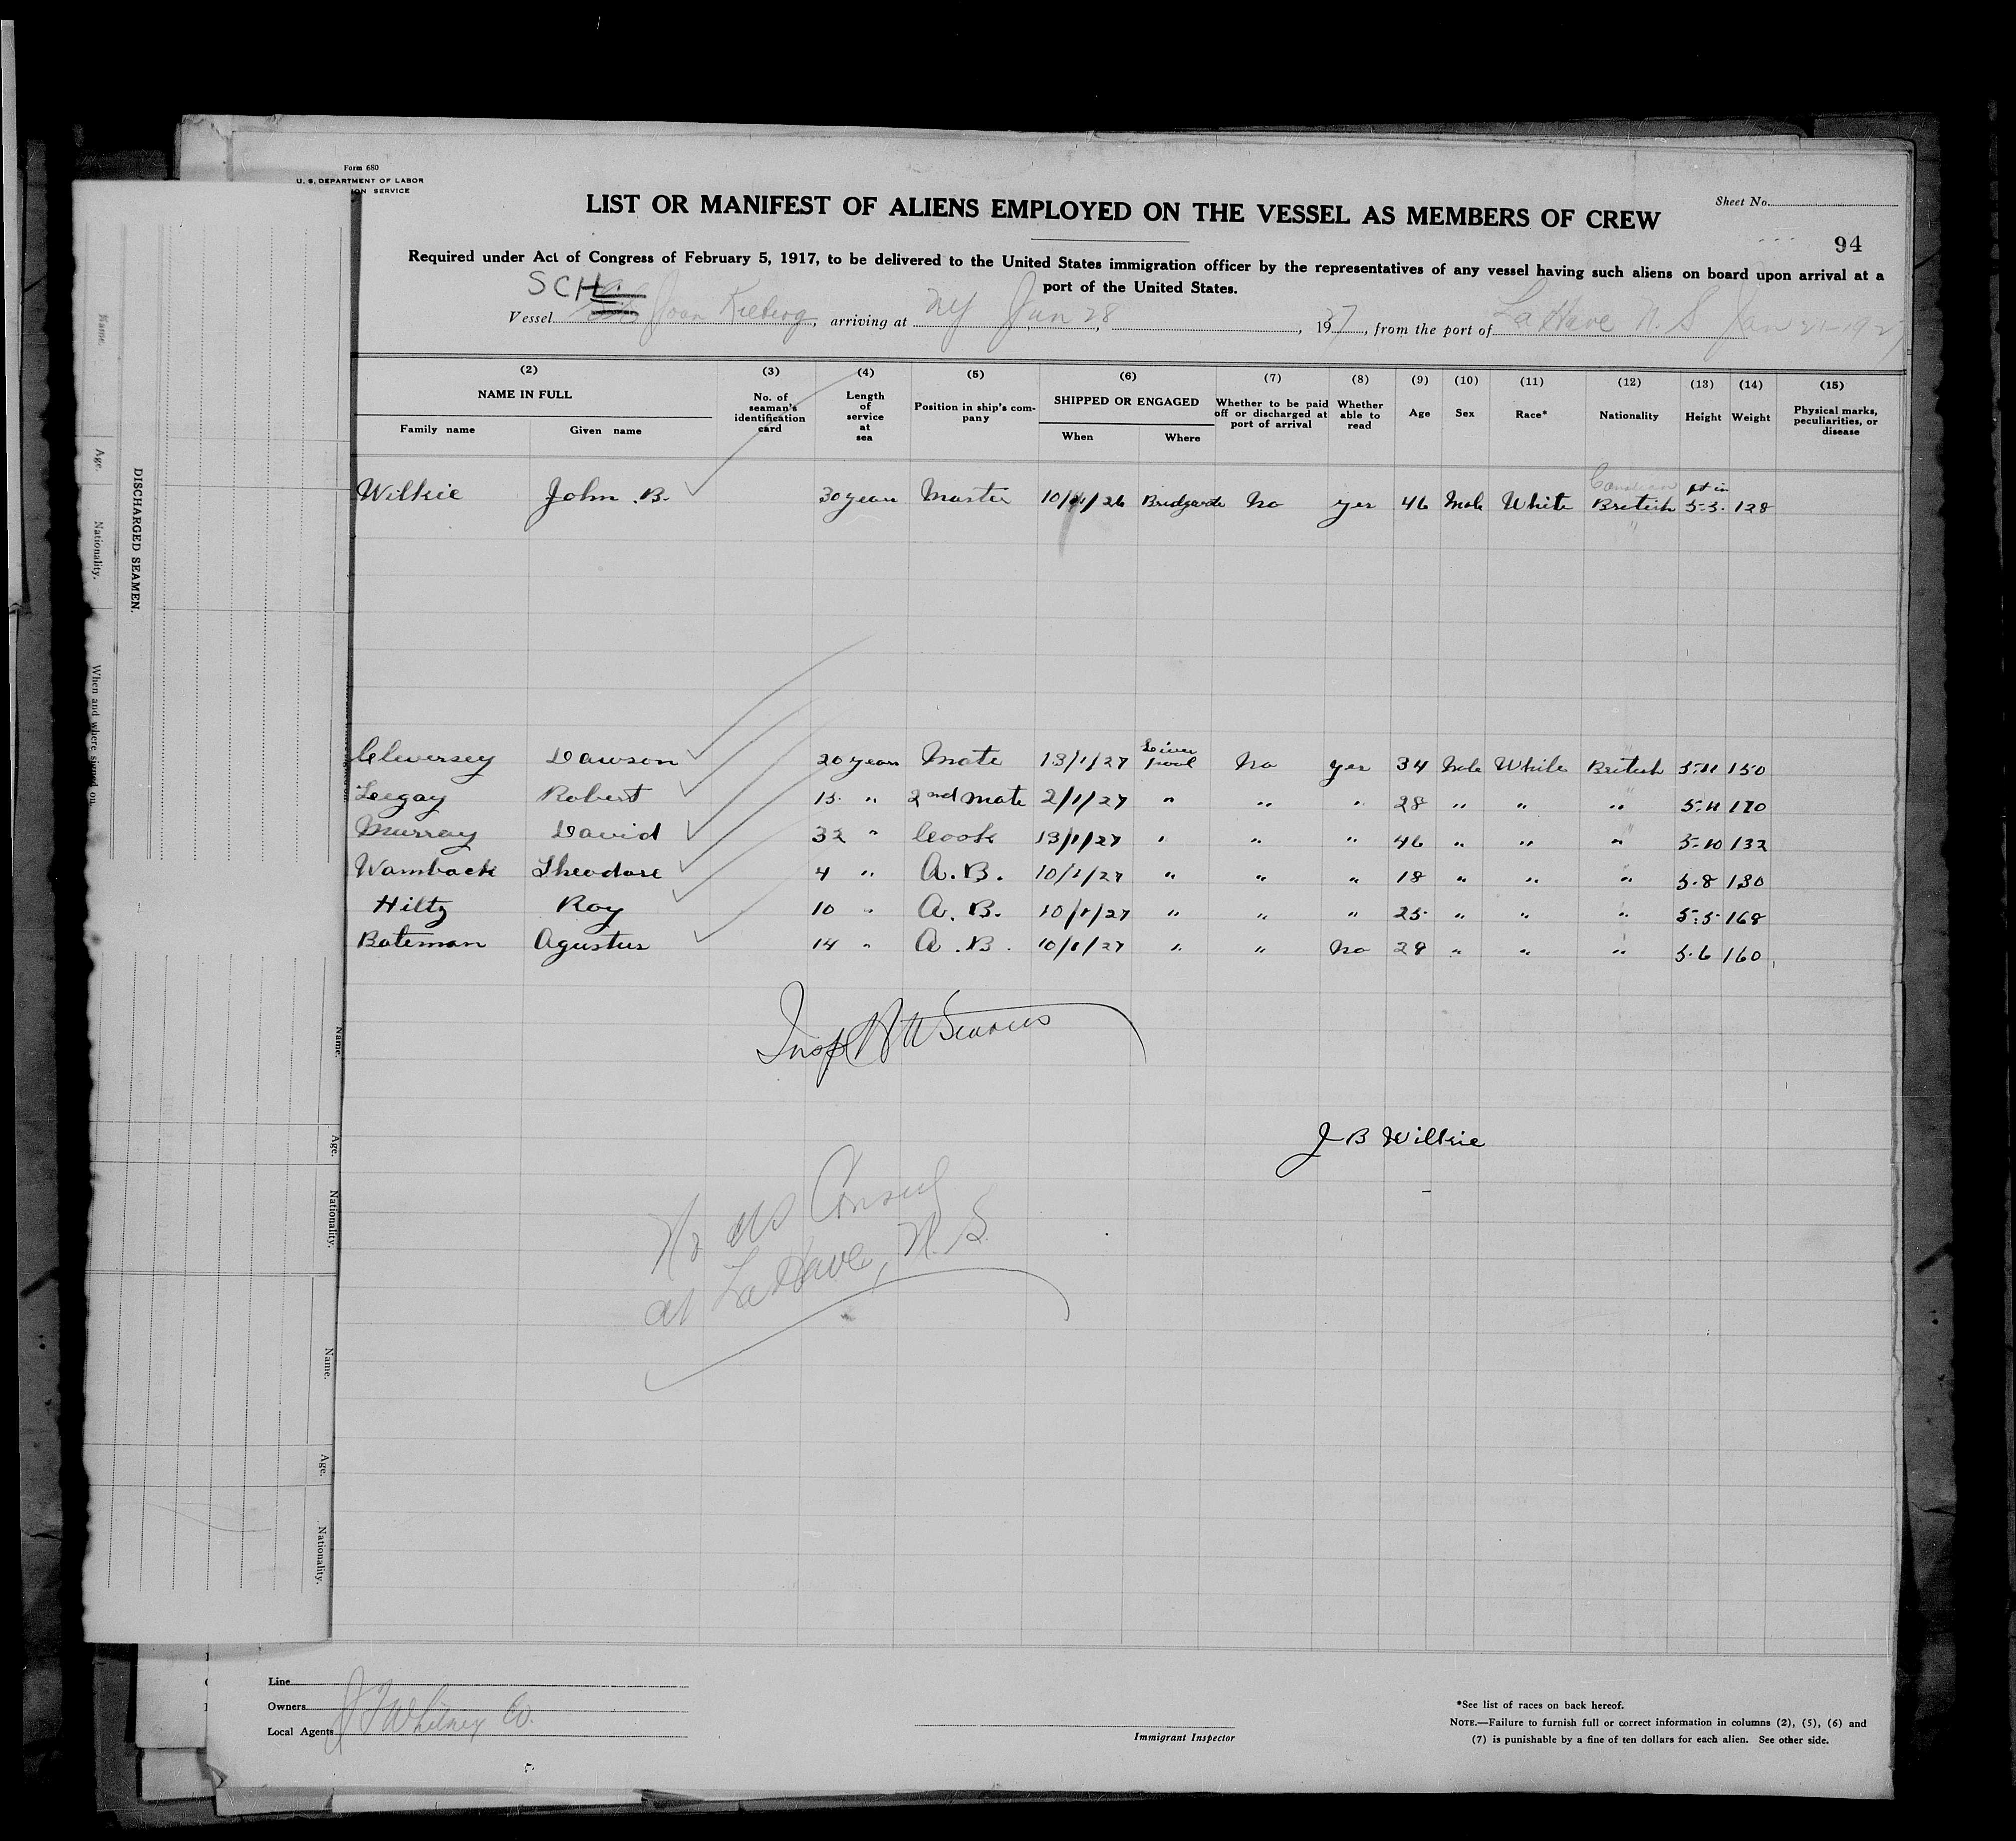 Form 680
U. S. DEPARTMENT OF LABOR
ION SERVICE
LIST OR MANIFEST OF ALIENS EMPLOYED ON THE VESSEL AS MEMBERS OF CREW
Sheet No.
94
Required under Act of Congress of February 5, 1917, to be delivered to the United States immigration officer by the representatives of any vessel having such aliens on board upon arrival at a
port of the United States.
SCH
Vessel Joan Kielberg, arriving at NY Jan 28, 1927, from the port of LaHave N. S Jan 21-1927
(2) (3) (4) (5) (6) (7) (8) (9) (10) (11) (12) (13) (14) (15)
NAME IN FULL No. of seaman's identification card Length of service at sea Position in ship's company SHIPPED OR ENGAGED Whether to be paid off or discharged at port of arrival Whether able to read Age Sex Race* Nationality Height Weight Physical marks, peculiarities, or disease
Family name Given name When Where
Canadian ft in
Wilkie John .B. 30 years Master 10/ /26 No yes 46 Male White British 5-5. 138
Dawson 20 years Mate 13/1/27 Liverpool No yes 34 Male White British 5-11 150
Robert 15 " 2nd Mate 2/1/27 " " " 28 " " " 5-11 170
Murray David 32 " Cook 13/1/27 " " " 46 " " " 5-10 132
Wamback Theodore 4 " A. B. 10/1/27 " " " 18 " " " 5-8 130
Hiltz Roy 10 " A. B. 10/1/27 " " " 25 " " " 5-5 168
Bateman Agustus 14 " A. B. 10/1/27 " " No 29 " " " 5-6 160
J B Wilkie
No US Consul
at LaHave, N. S.
Line
Owners
Local Agents J F Whitney Co.
Immigrant Inspector
*See list of races on back hereof.
NOTE.—Failure to furnish full or correct information in columns (2), (5), (6) and
(7) is punishable by a fine of ten dollars for each alien. See other side.
DISCHARGED SEAMEN.
Name.
Age.
Nationality.
When and where signed on.
Name.
Age.
Nationality.
Name.
Age.
Nationality.